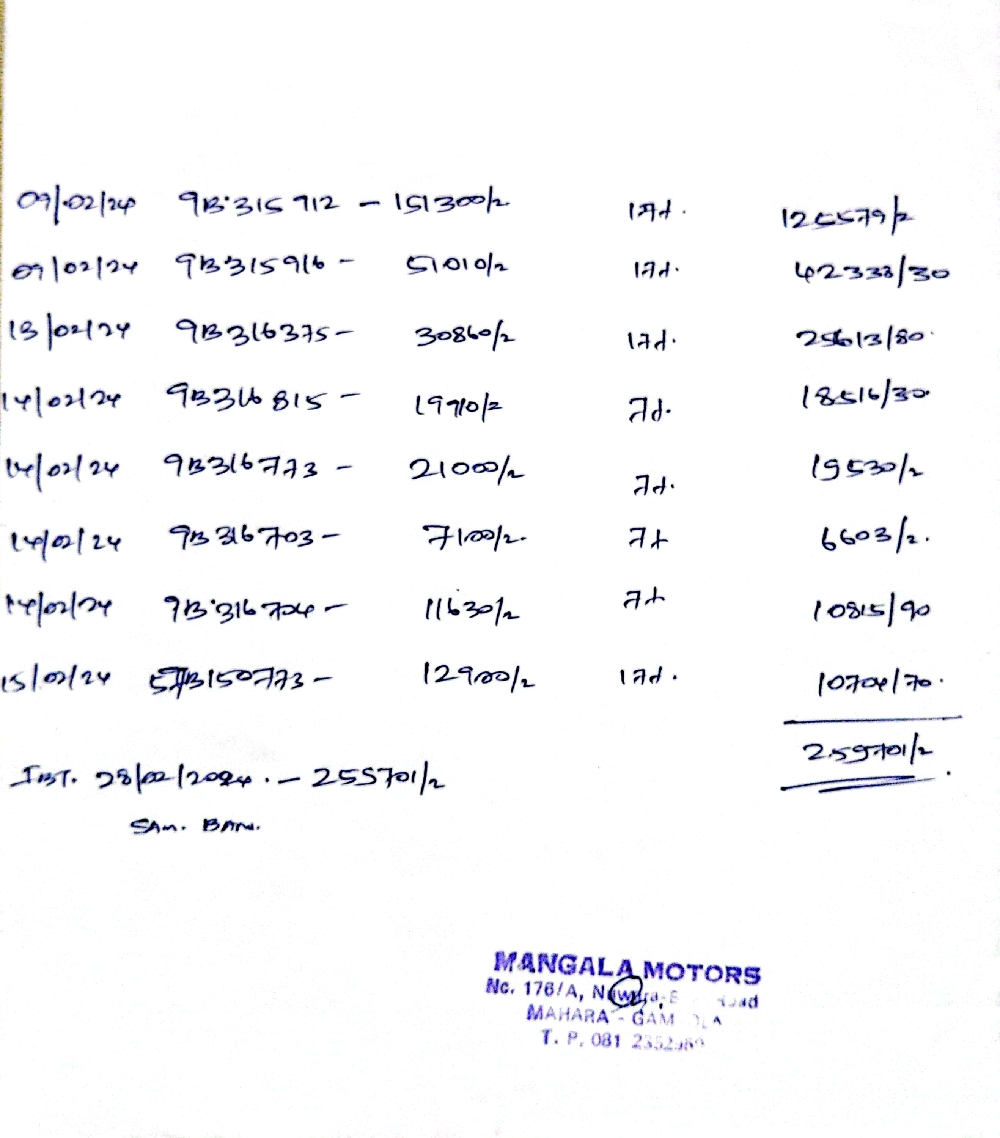 09/02/24 9B315912 - 151300/= 17d. 125579/=
09/02/24 9B315916 - 51010/= 17d. 42338/30
13/02/24 9B316375 - 30860/= 17d. 25613/80
14/02/24 9B316815 - 19910/= 7d. 18516/30
14/02/24 9B316773 - 21000/= 7d. 19530/=
14/02/24 9B316703 - 7100/= 7d 6603/=.
14/02/24 9B316704 - 11630/= 7d 10815/90
15/02/24 57B150773 - 12900/= 17d. 10704/70.
259701/=
28/02/2024. - 255701/=
SAM. BANK.
MANGALA MOTORS
No. 176/A,
MAHARA -
T. P. 081